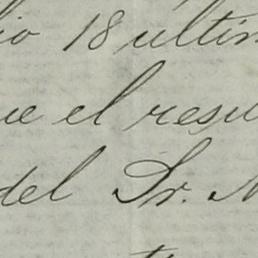 io 18 últim
ue el resul
del Sr. N